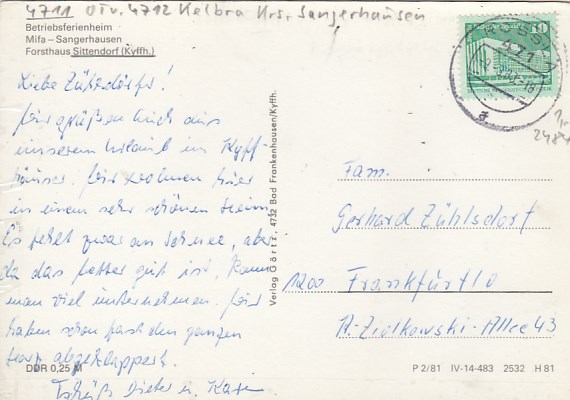 4711 OT v. 4712 Kelbra Krs. Sangerhausen
Betriebsferienheim
Mifa – Sangerhausen
Forsthaus Sittendorf (Kyffh.)
10
Liebe Zühlsdorfs!
Wir grüßen Euch aus
unserem Urlaub im Kyff-
häuser. Wir wohnen hier
in einem sehr schönen Heim.
Es fehlt zwar an Schnee, aber
da das Wetter gut ist, kann
man viel unternehmen. Wir
haben schon fast den ganzen
Harz abgeklappert.
Tschüß Dieter u.
Verlag Görtz, 4732 Bad Frankenhausen/Kyffh.
2484
Fam.
Gerhard Zühlsdorf
1200 Frankfurt/O
K.-Ziolkowski-Allee 43
DDR 0,25 M
P 2/81 IV-14-483 2532 H 81